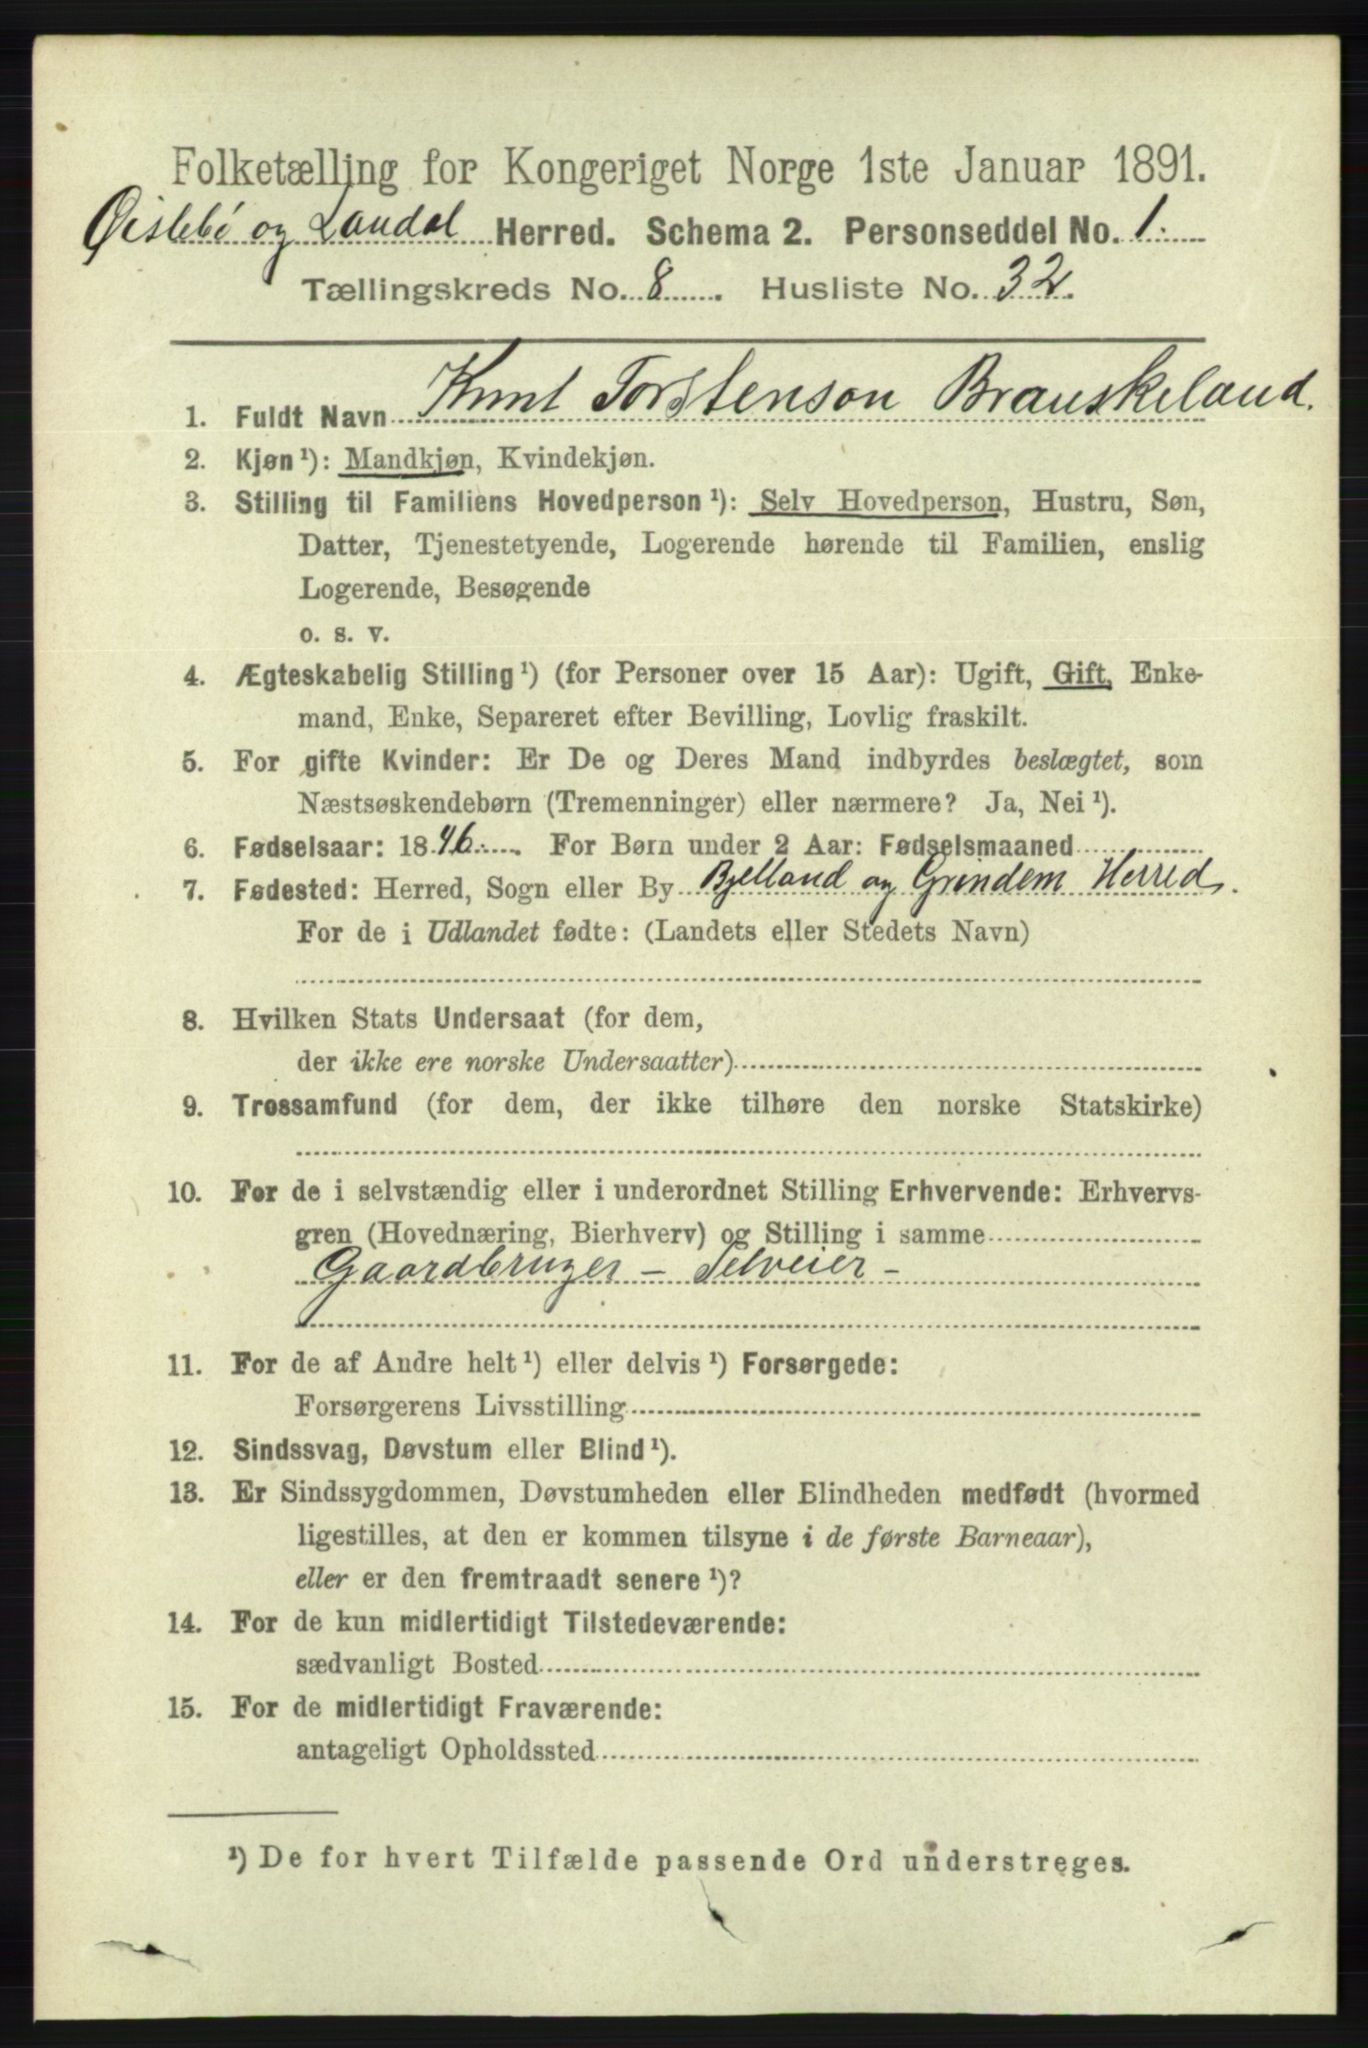 Folketælling for Kongeriget Norge 1ste Januar 1891.
Øislebö og Laudal Herred. Schema 2. Personseddel No. 1.
Tællingskreds No. 8. Husliste No. 32.
1. Fuldt Navn Knut Torstenson Brauskeland.
2. Kjøn ¹): Mandkjøn, Kvindekjøn.
3. Stilling til Familiens Hovedperson ¹): Selv Hovedperson, Hustru, Søn,
Datter, Tjenestetyende, Logerende hørende til Familien, enslig
Logerende, Besøgende
o. s. v.
4. Ægteskabelig Stilling ¹) (for Personer over 15 Aar): Ugift, Gift, Enke-
mand, Enke, Separeret efter Bevilling, Lovlig fraskilt.
5. For gifte Kvinder: Er De og Deres Mand indbyrdes beslægtet, som
Næstsøskendebørn (Tremenninger) eller nærmere? Ja, Nei ¹).
6. Fødselsaar: 1846. For Børn under 2 Aar: Fødselsmaaned
7. Fødested: Herred, Sogn eller By Bjelland og Grindem Herred.
For de i Udlandet fødte: (Landets eller Stedets Navn)
8. Hvilken Stats Undersaat (for dem,
der ikke ere norske Undersaatter)
9. Trossamfund (for dem, der ikke tilhøre den norske Statskirke)
10. For de i selvstændig eller i underordnet Stilling Erhvervende: Erhvervs-
gren (Hovednæring, Bierhverv) og Stilling i samme
Gaardbruger - Selveier -
11. For de af Andre helt ¹) eller delvis ¹) Forsørgede:
Forsørgerens Livsstilling
12. Sindssvag, Døvstum eller Blind ¹).
13. Er Sindssygdommen, Døvstumheden eller Blindheden medfødt (hvormed
ligestilles, at den er kommen tilsyne i de første Barneaar),
eller er den fremtraadt senere ¹)?
14. For de kun midlertidigt Tilstedeværende:
sædvanligt Bosted
15. For de midlertidigt Fraværende:
antageligt Opholdssted
¹) De for hvert Tilfælde passende Ord understreges.